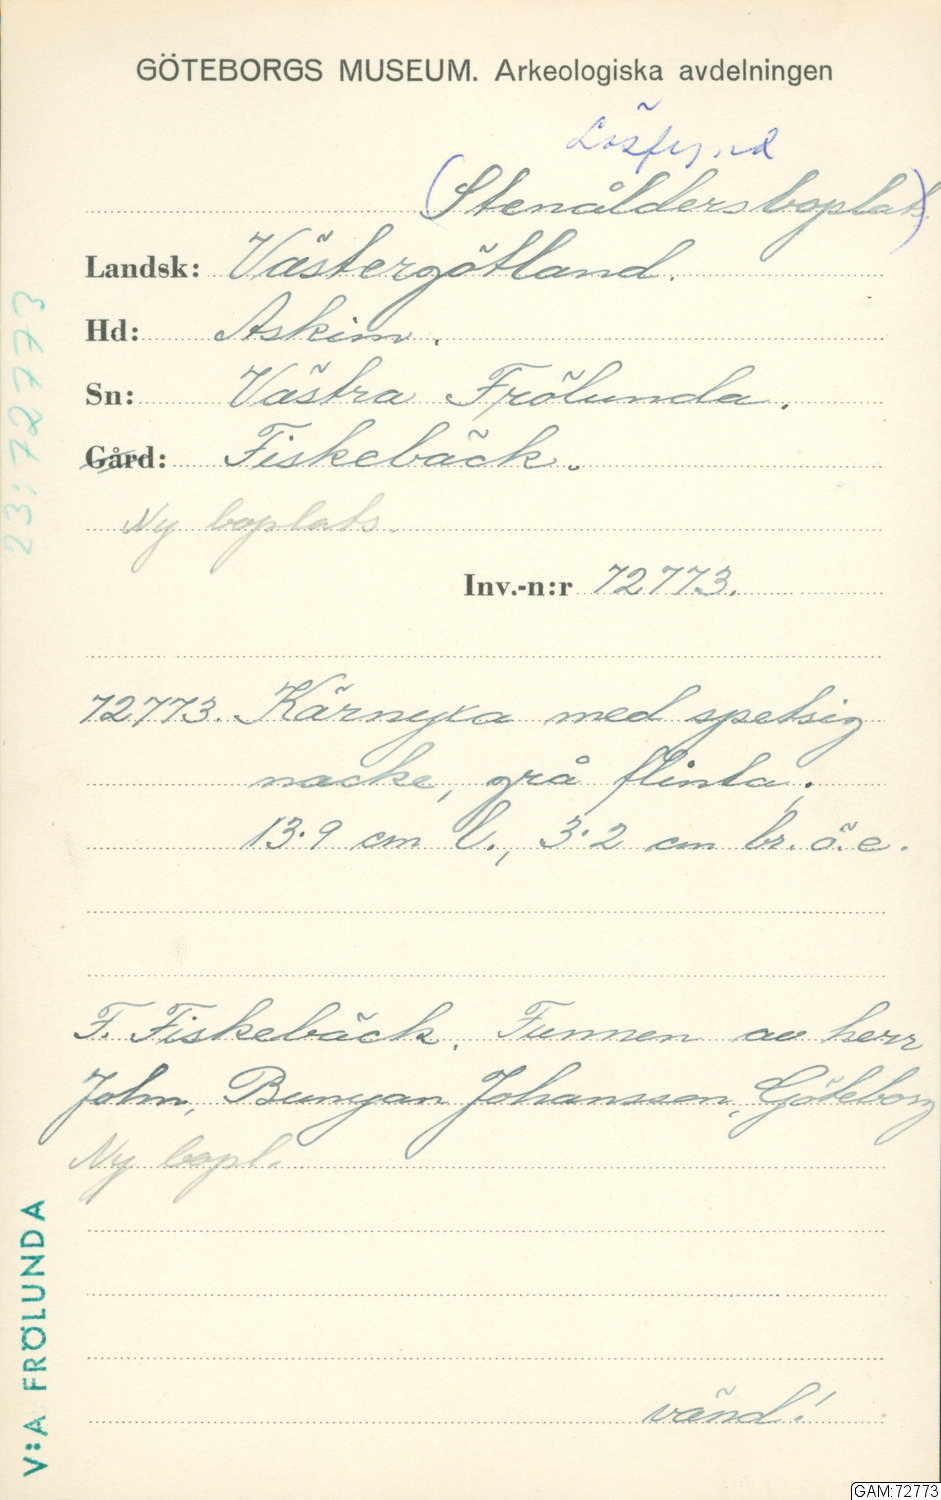 GÖTEBORGS MUSEUM. Arkeologiska avdelningen
Lösfynd
(Stenåldersboplats)
Landsk: Västergötland.
Hd: Askim.
Sn: Västra Frölunda.
Gård: Fiskebäck.
Ny boplats.
Inv.-n:r 72773.
72773. Kärnyxa med spetsig
nacke, grå flinta;
13.9 cm l., 3.2 cm br. ö. e.
F. Fiskebäck. Funnen av herr
John, Bunyan Johansson, Göteborg
Ny bopl.
vänd!
23:72773
V:A FRÖLUNDA
GAM:72773